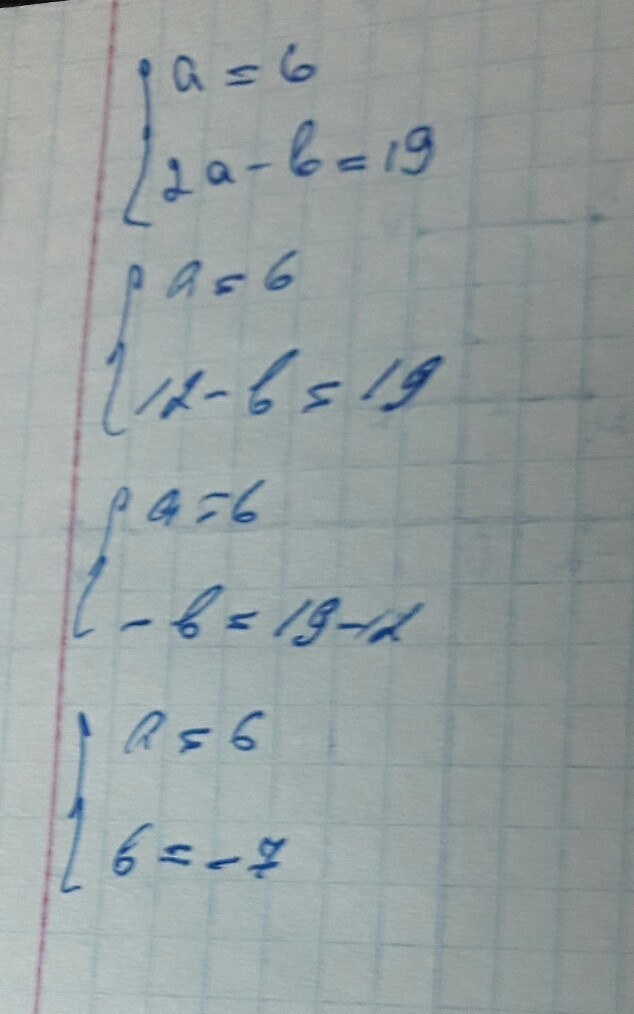 a = 6
2a - b = 19
a = 6
12 - b = 19
a = 6
- b = 19 - 12
a = 6
b = - 7